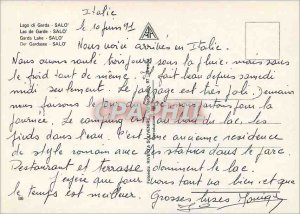 Lago di Garda - SALO'
Lac de Garde - SALO'
Garda Lake - SALO'
Der Gardasee - SALO'
Italie
le 10 juin 91
Nous voici arrivés en Italie.
Nous avons roulé toujours sous la pluie, mais sous
le froid tout de même. Il fait beau depuis samedi
midi seulement. Le paysage est très joli. Demain
nous faisons le pour la
journée. Le camping est au bord du lac, les
pieds dans l'eau. C'est une ancienne residence
de style romain avec les statues dans le parc.
Restaurant et terrasse dominent le lac.
J'espère que pour vous tout va bien et que
le temps est meilleur. Grosses bises